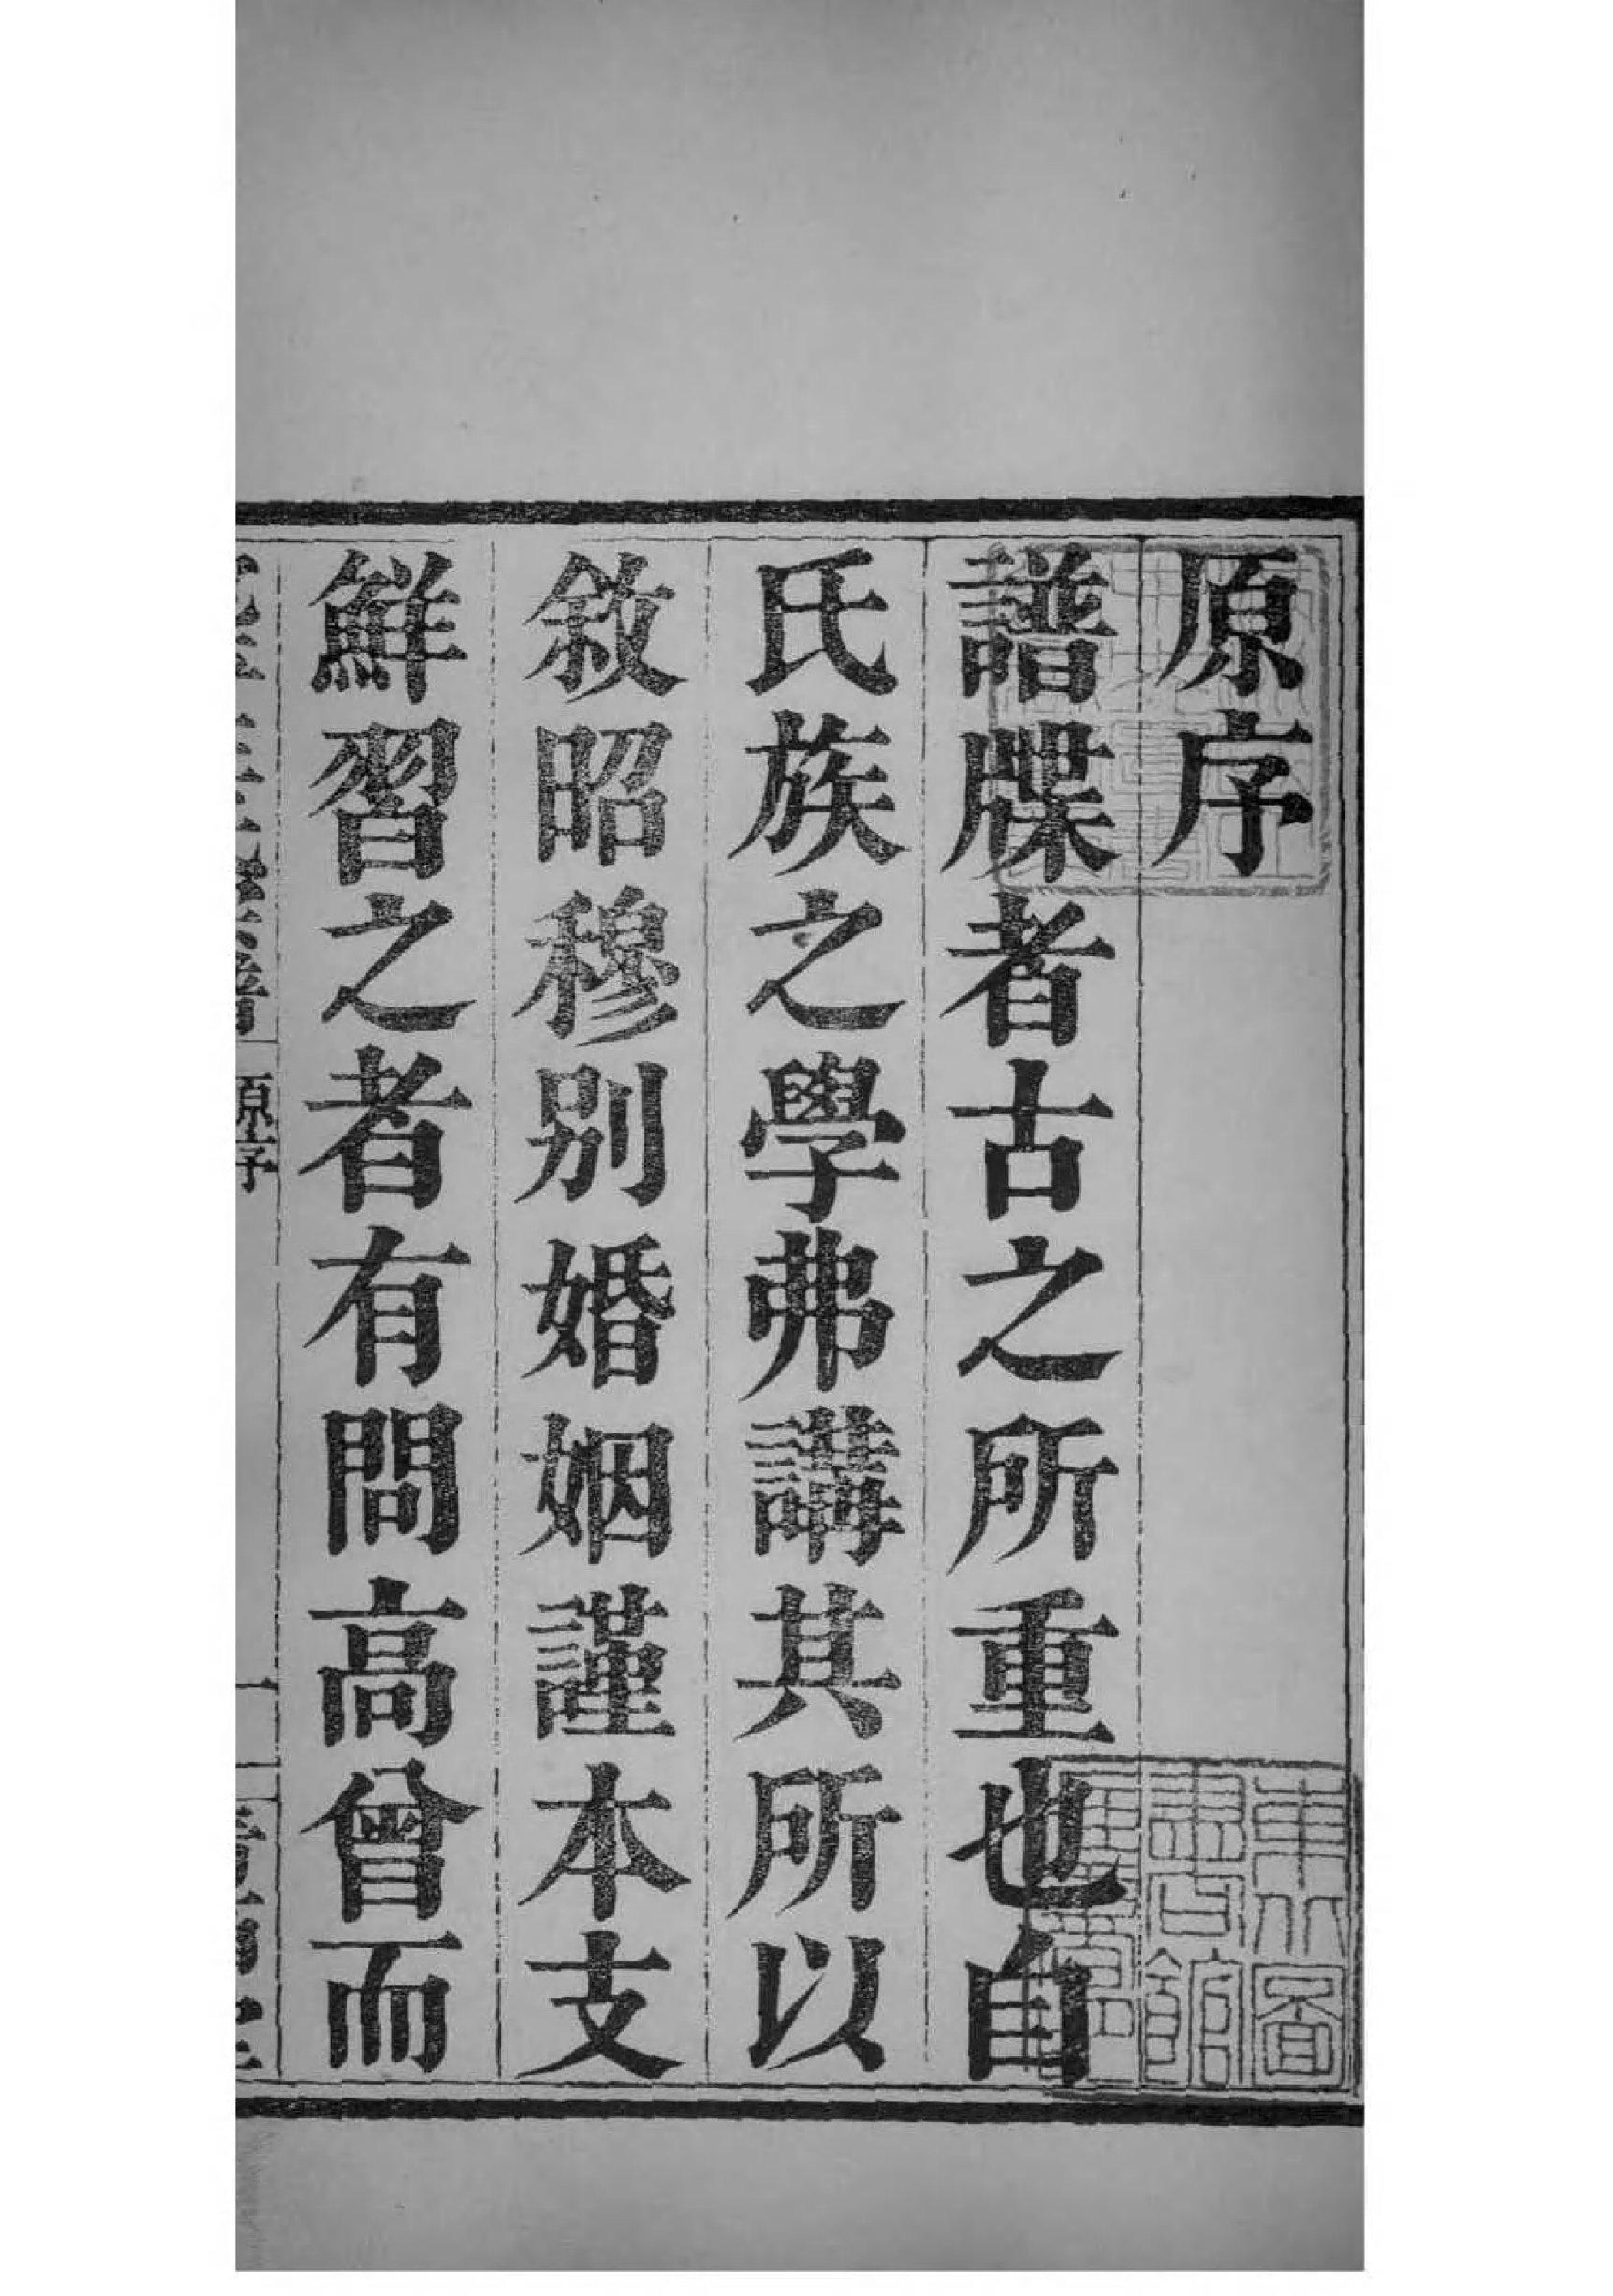 原序
譜牒者古之所重也自
氏族之學弗講其所以
敘昭穆別婚姻謹本支
鮮習之者有問高曾而
原序
一